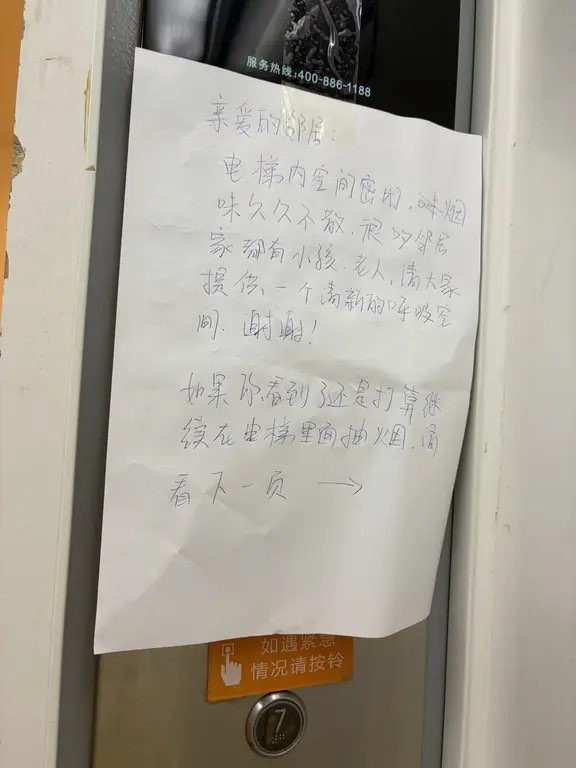 服务热线:400-886-1188
亲爱的邻居:
电梯内空间密闭,味烟
味久久不散,很多邻居
家都有小孩.老人,请大家
提供一个清新的呼吸空
间.谢谢!
如果你看到了还是打算继
续在电梯里面抽烟.请
看下一页 →
如遇紧急
情况请按铃
7